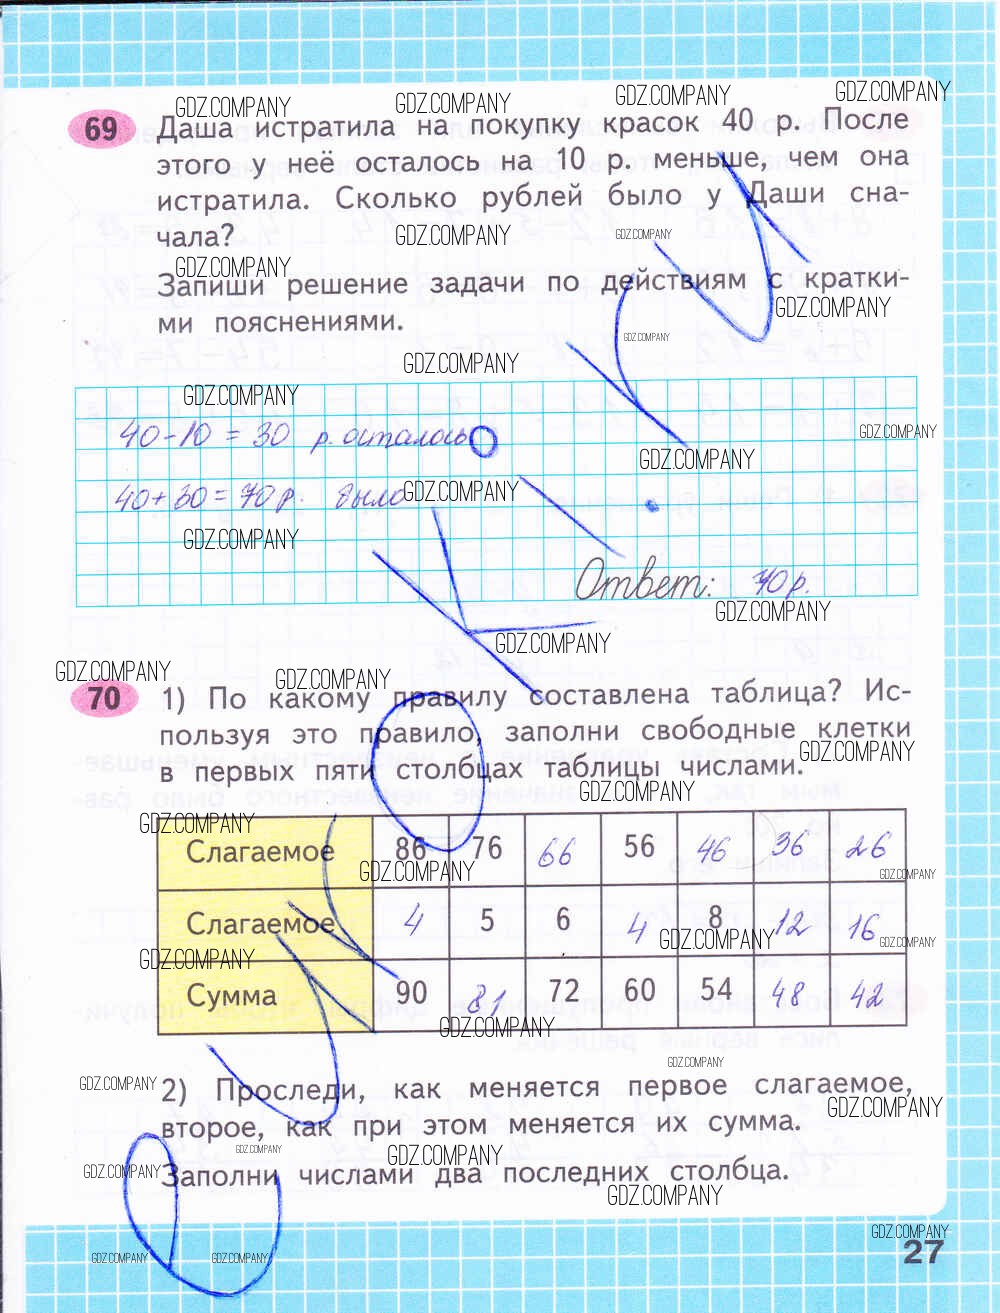 GDZ.COMPANY GDZ.COMPANY GDZ.COMPANY GDZ.COMPANY
69 Даша истратила на покупку красок 40 р. После
этого у неё осталось на 10 р. меньше, чем она
истратила. Сколько рублей было у Даши сна-
чала?
GDZ.COMPANY GDZ.COMPANY
GDZ.COMPANY
Запиши решение задачи по действиям с кратки-
GDZ.COMPANY
ми пояснениями.
GDZ.COMPANY
GDZ.COMPANY
GDZ.COMPANY
40-10 = 30 р. осталось
GDZ.COMPANY
GDZ.COMPANY
40+30=70 р. было GDZ.COMPANY
GDZ.COMPANY
Ответ: 70р.
GDZ.COMPANY
GDZ.COMPANY
GDZ.COMPANY GDZ.COMPANY
70 1) По какому правилу составлена таблица? Ис-
пользуя это правило, заполни свободные клетки
GDZ.COMPANY
в первых пяти столбцах таблицы числами.
GDZ.COMPANY
GDZ.COMPANY
Слагаемое 86 76 66 56 46 36 26
GDZ.COMPANY GDZ.COMPANY
Слагаемое 4 5 6 4 8 12 16
GDZ.COMPANY GDZ.COMPANY
GDZ.COMPANY
Сумма 90 81 72 60 54 48 42
GDZ.COMPANY
GDZ.COMPANY
GDZ.COMPANY
2) Проследи, как меняется первое слагаемое,
GDZ.COMPANY
второе, как при этом меняется их сумма.
GDZ.COMPANY GDZ.COMPANY
GDZ.COMPANY
Заполни числами два последних столбца.
GDZ.COMPANY
GDZ.COMPANY
27
GDZ.COMPANY GDZ.COMPANY